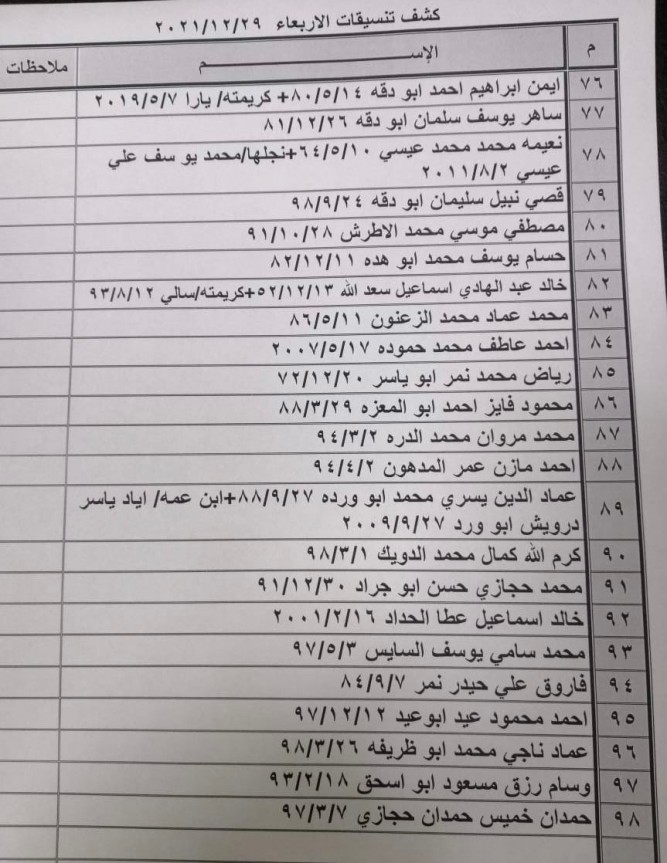 كشف تنسيقات الاربعاء ٢٠٢١/١٢/٢٩
م الإســـــــم ملاحظات
٧٦ ايمن ابراهيم احمد ابو دقه ٨٠/٥/١٤+ كريمته/ يارا ٢٠١٩/٥/٧
٧٧ ساهر يوسف سلمان ابو دقه ٨١/١٢/٢٦
٧٨ نعيمه محمد محمد عيسي ٦٤/٥/١٠+نجلها/محمد يو سف علي
عيسي ٢٠١١/٨/٢
٧٩ قصي نبيل سليمان ابو دقه ٩٨/٩/٢٤
٨٠ مصطفي موسي محمد الاطرش ٩١/١٠/٢٨
٨١ حسام يوسف محمد ابو هده ٨٢/١٢/١١
٨٢ خالد عبد الهادي اسماعيل سعد الله ٥٢/١٢/١٣+كريمته/سالي ٩٣/٨/١٢
٨٣ محمد عماد محمد الزعنون ٨٦/٥/١١
٨٤ احمد عاطف محمد حموده ٢٠٠٧/٥/١٧
٨٥ رياض محمد نمر ابو ياسر ٧٢/١٢/٢٠
٨٦ محمود فايز احمد ابو المعزه ٨٨/٣/٢٩
٨٧ محمد مروان محمد الدره ٩٤/٣/٢
٨٨ احمد مازن عمر المدهون ٩٤/٤/٢
٨٩ عماد الدين يسري محمد ابو ورده ٨٨/٩/٢٧+ابن عمه/ اياد ياسر
درويش ابو ورد ٢٠٠٩/٩/٢٧
٩٠ كرم الله كمال محمد الدويك ٩٨/٣/١
٩١ محمد حجازي حسن ابو جراد ٩١/١٢/٣٠
٩٢ خالد اسماعيل عطا الحداد ٢٠٠١/٢/١٦
٩٣ محمد سامي يوسف السايس ٩٧/٥/٣
٩٤ فاروق علي حيدر نمر ٨٤/٩/٧
٩٥ احمد محمود عيد ابوعيد ٩٧/١٢/١٢
٩٦ عماد ناجي محمد ابو ظريفه ٩٨/٣/٢٦
٩٧ وسام رزق مسعود ابو اسحق ٩٣/٢/١٨
٩٨ حمدان خميس حمدان حجازي ٩٧/٣/٧